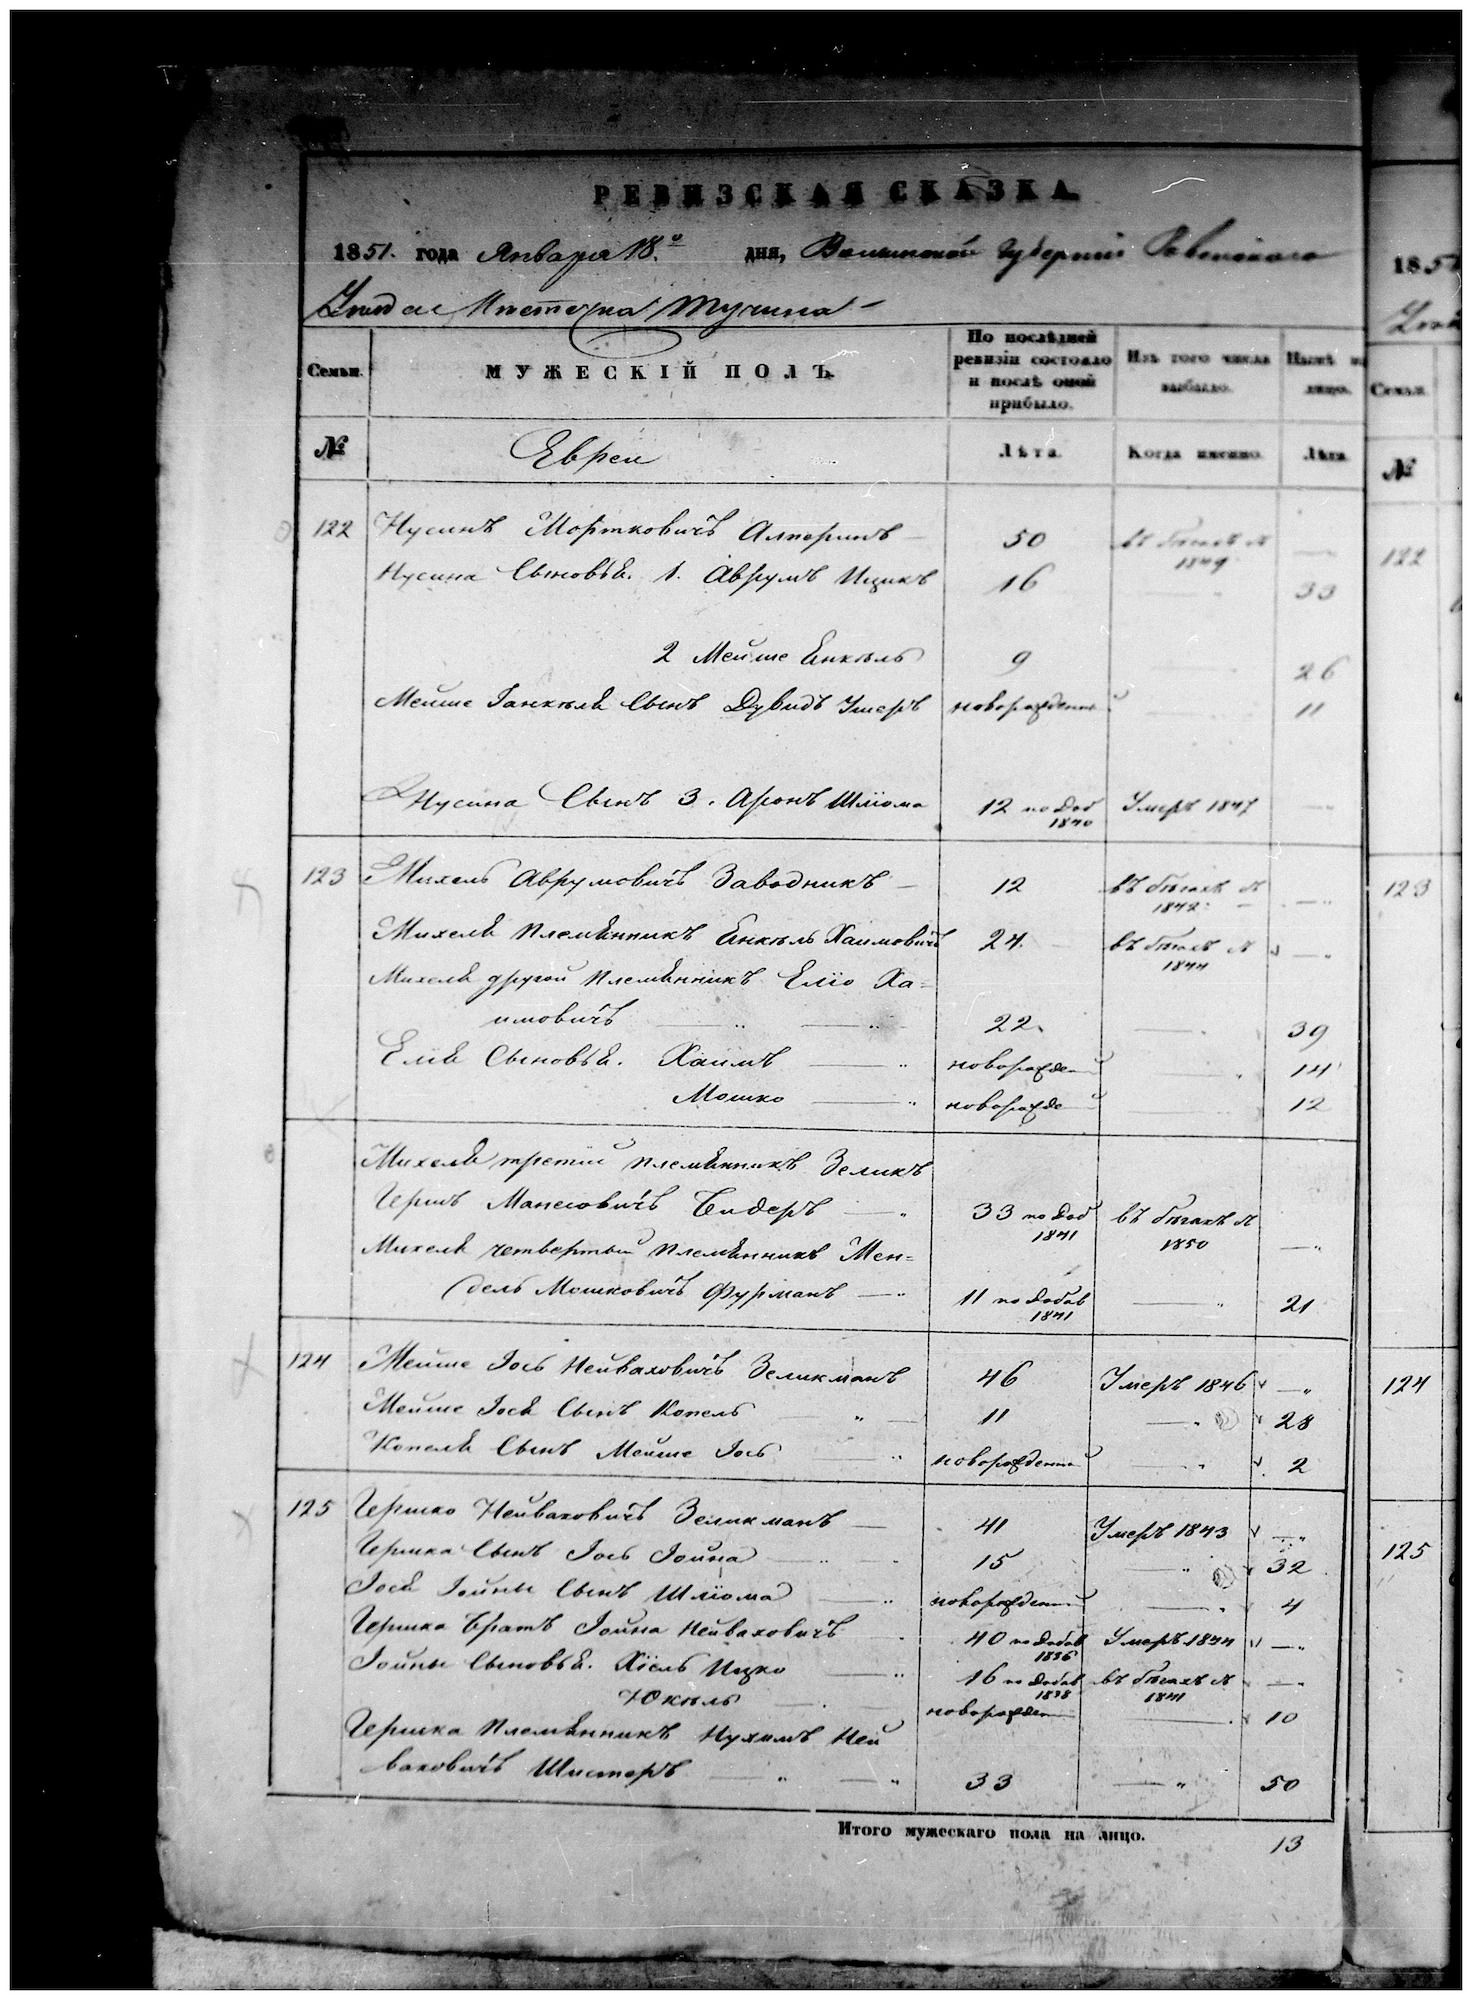 РЕВИЗСКАЯ СКАЗКА
1851. года Января 18.о дня, Волынской Губернии Ровенского
Уезда Местечка Тучина
Семьи. МУЖЕСКІЙ ПОЛЪ. По послѣдней ревизіи состояло и послѣ оной прибыло. Изъ того числа выбыло. Нынѣ на лицо.
№ Евреи Лѣта. Когда именно. Лѣта.
122 Нусинъ Мортковичъ Алперинъ — 50 въ бѣгахъ съ 1849 —
Нусина Сыновья. 1. Аврумъ Ицикъ 16 — 33
2 Мейше Янкель 9 — 26
Мейше Іанкеля Сынъ Дувидъ Ушеръ новорожденный — 11
Нусина Сынъ 3. Аронъ Шліома 12 по доб 1840 Умеръ 1847 —
123 Михель Аврумовичъ Заводникъ — 12 въ бѣгахъ съ 1842 — "
Михеля племянникъ Янкель Хаимовичъ 24. въ бѣгахъ съ 1844 — "
Михеля другой племянникъ Еліо Ха=
имовичъ — " — " 22. — 39
Елія Сыновья. Хаимъ — " новорожден — " 14
Мошко — " новорожде 12
Михеля третій племянникъ Зеликъ
Гершъ Манесовичъ Бидеръ — " 33 по доб 1841 въ бѣгахъ съ 1850 — "
Михеля четвертый племянникъ Мен=
дель Мошковичъ Фурманъ — " 11 по добав 1841 — " 21
124 Мейше Іось Нейваховичъ Зеликманъ 46 Умеръ 1846 — "
Мейше Іося Сынъ Копель — " — 11 — " 28
Копеля Сынъ Мейше Іось — " новорожденный — " 2
125 Гершко Нейваховичъ Зеликманъ — 41 Умеръ 1843 — "
Гершка Сынъ Іось Іойна — " — 15 — " 32
Іося Іойны Сынъ Шліома — " новорожденный — " 4
Гершка Братъ Іойна Нейваховичъ 40 по добав 1836 Умеръ 1844 — "
Іойны Сыновья. Хіель Ицко — " 16 по добав 1838 въ бѣгахъ съ 1841 — "
Юкель — новорожден — 10
Гершка племянникъ Нухимъ Ней
ваховичъ Шистеръ — " — " 33 — " 50
Итого мужескаго пола на лицо. 13
185
Семьи
№
122
123
124
125